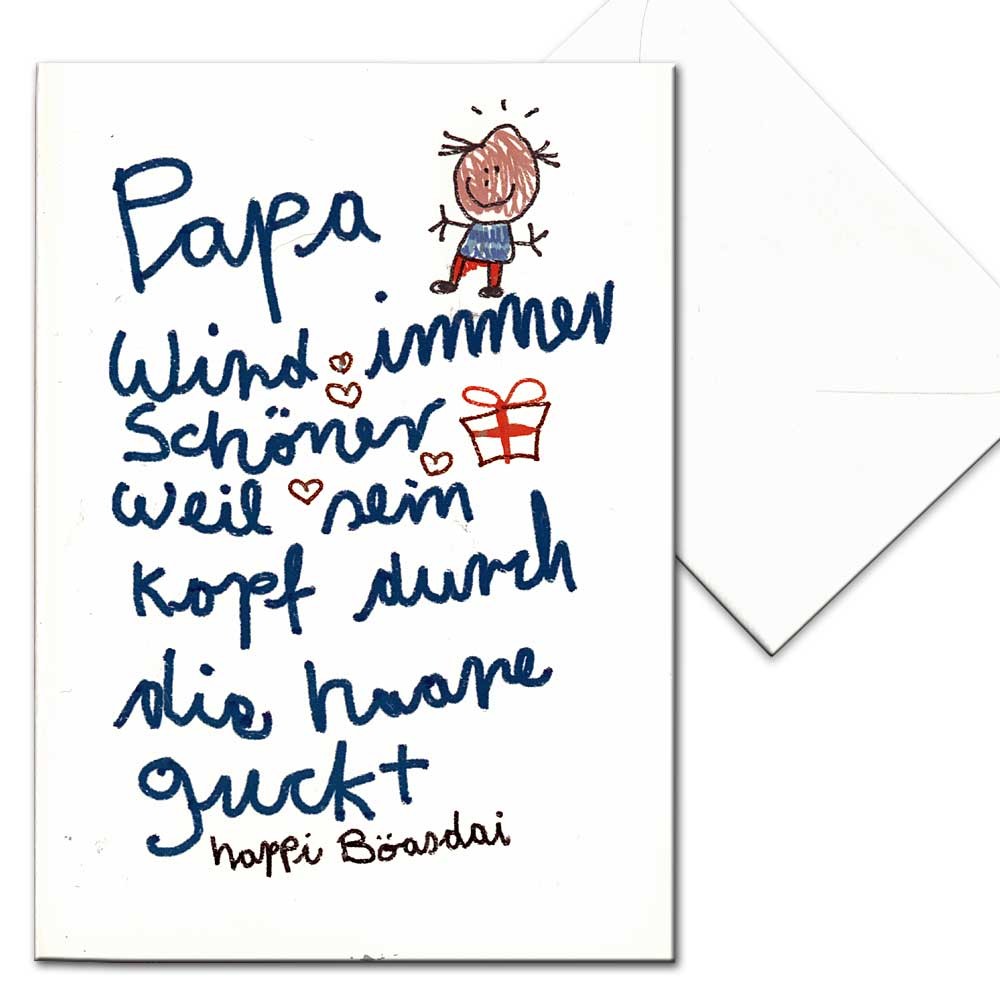 Papa
Wird immer
Schöner
weil sein
kopf durch
die haare
guckt
happi Böasdai